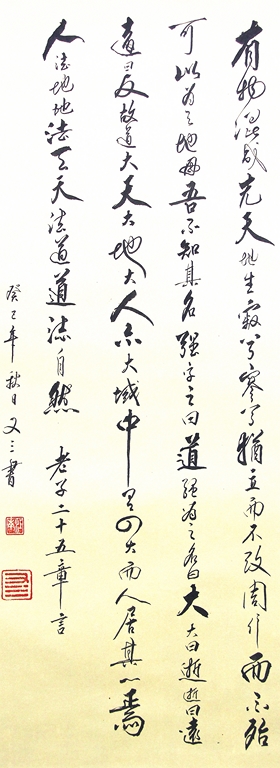 有物混成先天地生寂兮寥兮猶立而不改周行而不殆
可以为天地母吾不知其名强字之曰道强为之名曰大大曰逝逝曰遠
遠曰反故道大天大地大人亦大域中有四大而人居其一焉
人法地地法天天法道道法自然 老子二十五章言
癸巳年秋日又三書